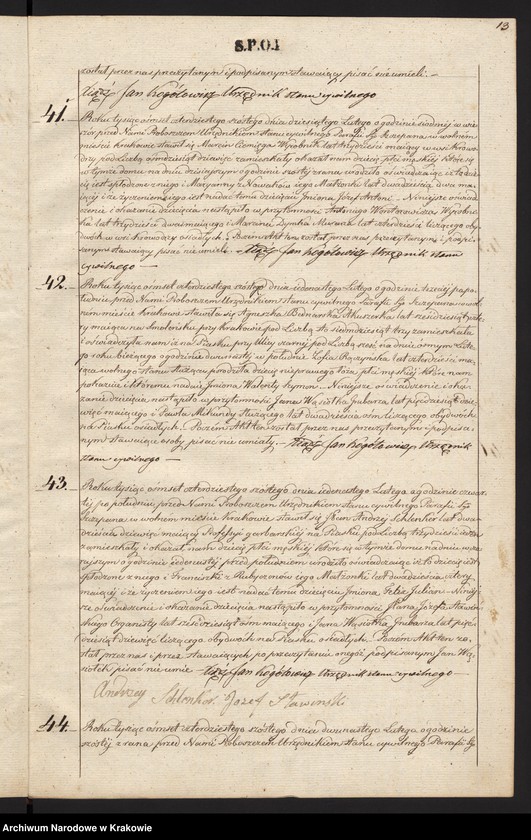 13
S.P.O.J
został przez nas przeczytanym i podpisanym stawający pisać nie umieli. —
Xiądz Jan Rogólowicz Urzędnik stanu cywilnego
41. Roku tysiąc ośmset czterdziestego szóstego dnia dziesiątego Lutego o godzinie siódmej w wie-
czór przed Nami Proboszczem Urzędnikiem stanu cywilnego Parafii Sgo Szczepana w wolnem
mieście Krakowie stawił się Marcin Wyrobnik lat trzydzieści mający
pod Liczbą ośmdziesiąt dziewięć zamieszkały okazał nam dziecię płci męskiej które się
w tymże domu na dniu dzisiejszym o godzinie szóstej z rana urodziło oświadczając iż to dzie-
cię jest spłodzone z niego i Maryanny z Nowaków jego Małżonki lat dwadzieścia dwa ma-
jącej i że życzeniem jego jest nadać temu dziecięciu Imiona Józef Antoni. — Niniejsze oświad-
czenie i okazanie dziecięcia nastąpiło w przytomności Antoniego Wyrobni-
ka lat trzydzieści dwa mającego i Marcina lat czterdzieści liczącego oby-
dwóch osiadłych. Poczem Akt ten został przez nas przeczytanym i podpi-
sanym stawający pisać nie umieli — Xiądz Jan Rogólowicz Urzędnik stanu
cywilnego —
42. Roku tysiąc ośmset czterdziestego szóstego dnia jedenastego Lutego o godzinie trzeciej popo-
łudniu przed Nami Proboszczem Urzędnikiem stanu cywilnego Parafii Sgo Szczepana w wol-
nem mieście Krakowie stawiła się Agnieszka Bednarska Akuszerka lat sześćdziesiąt
mająca na Smoleńsku przy Krakowie pod Liczbą sto siedmdziesiąt trzy zamieszkała
i oświadczyła nam iż na Piasku przy Ulicy czarnej pod Liczbą sześć na dniu ósmym Lute-
go roku bieżącego o godzinie dwunastej w południe Zofia Raczyńska lat czterdzieści ma-
jąca wolnego stanu służąca porodziła dziecię nieprawego łoża płci męskiej które nam
pokazuje i któremu nadaje Imiona Walenty Szymon. — Niniejsze oświadczenie i oka-
zanie dziecięcia nastąpiło w przytomności Jana Wąsiołka Grabarza lat pięćdziesiąt dzie-
więć mającego i Pawła służącego lat dwadzieścia ośm liczącego obydwóch
na Piasku osiadłych. Poczem Akt ten został przez nas przeczytanym i podpisa-
nym stawające osoby pisać nie umiały. — Xiądz Jan Rogólowicz Urzędnik
stanu cywilnego —
43. Roku tysiąc ośmset czterdziestego szóstego dnia jedenastego Lutego o godzinie czwar-
tej po południu przed Nami Proboszczem Urzędnikiem stanu cywilnego Parafii Sgo
Szczepana w wolnem mieście Krakowie stawił się JPan Andrzej Schlenker lat dwa-
dzieścia dziewięć mający Professyi garbarskiej na Piasku pod Liczbą trzydzieści
zamieszkały i okazał nam dziecię płci męskiej które się w tymże domu na dniu wczo-
rajszym o godzinie jedenastej przed południem urodziło oświadczając iż to dziecię jest
spłodzone z niego i Franciszki z jego Małżonki lat dwadzieścia cztery
mającej i że życzeniem jego jest nadać temu dziecięciu Imiona Felix Julian. — Niniej-
sze oświadczenie i okazanie dziecięcia nastąpiło w przytomności JPana Józefa Stawiń-
skiego Organisty lat sześćdziesiąt ośm mającego i Jana Wąsiołka Grabarza lat pięć-
dziesiąt dziewięć liczącego obydwóch na Piasku osiadłych. Poczem Akt ten zo-
stał przez nas i przez stawających po przeczytaniu onegoż podpisanym Jan Wą-
siołek pisać nie umie — Xiądz Jan Rogólowicz Urzędnik stanu cywilnego —
Andrzey Schlenker. Jozef Stawinski
44. Roku tysiąc ośmset czterdziestego szóstego dnia dwunastego Lutego o godzinie
szóstej z rana przed Nami Proboszczem Urzędnikiem stanu cywilnego Parafii Sgo
Archiwum Narodowe w Krakowie